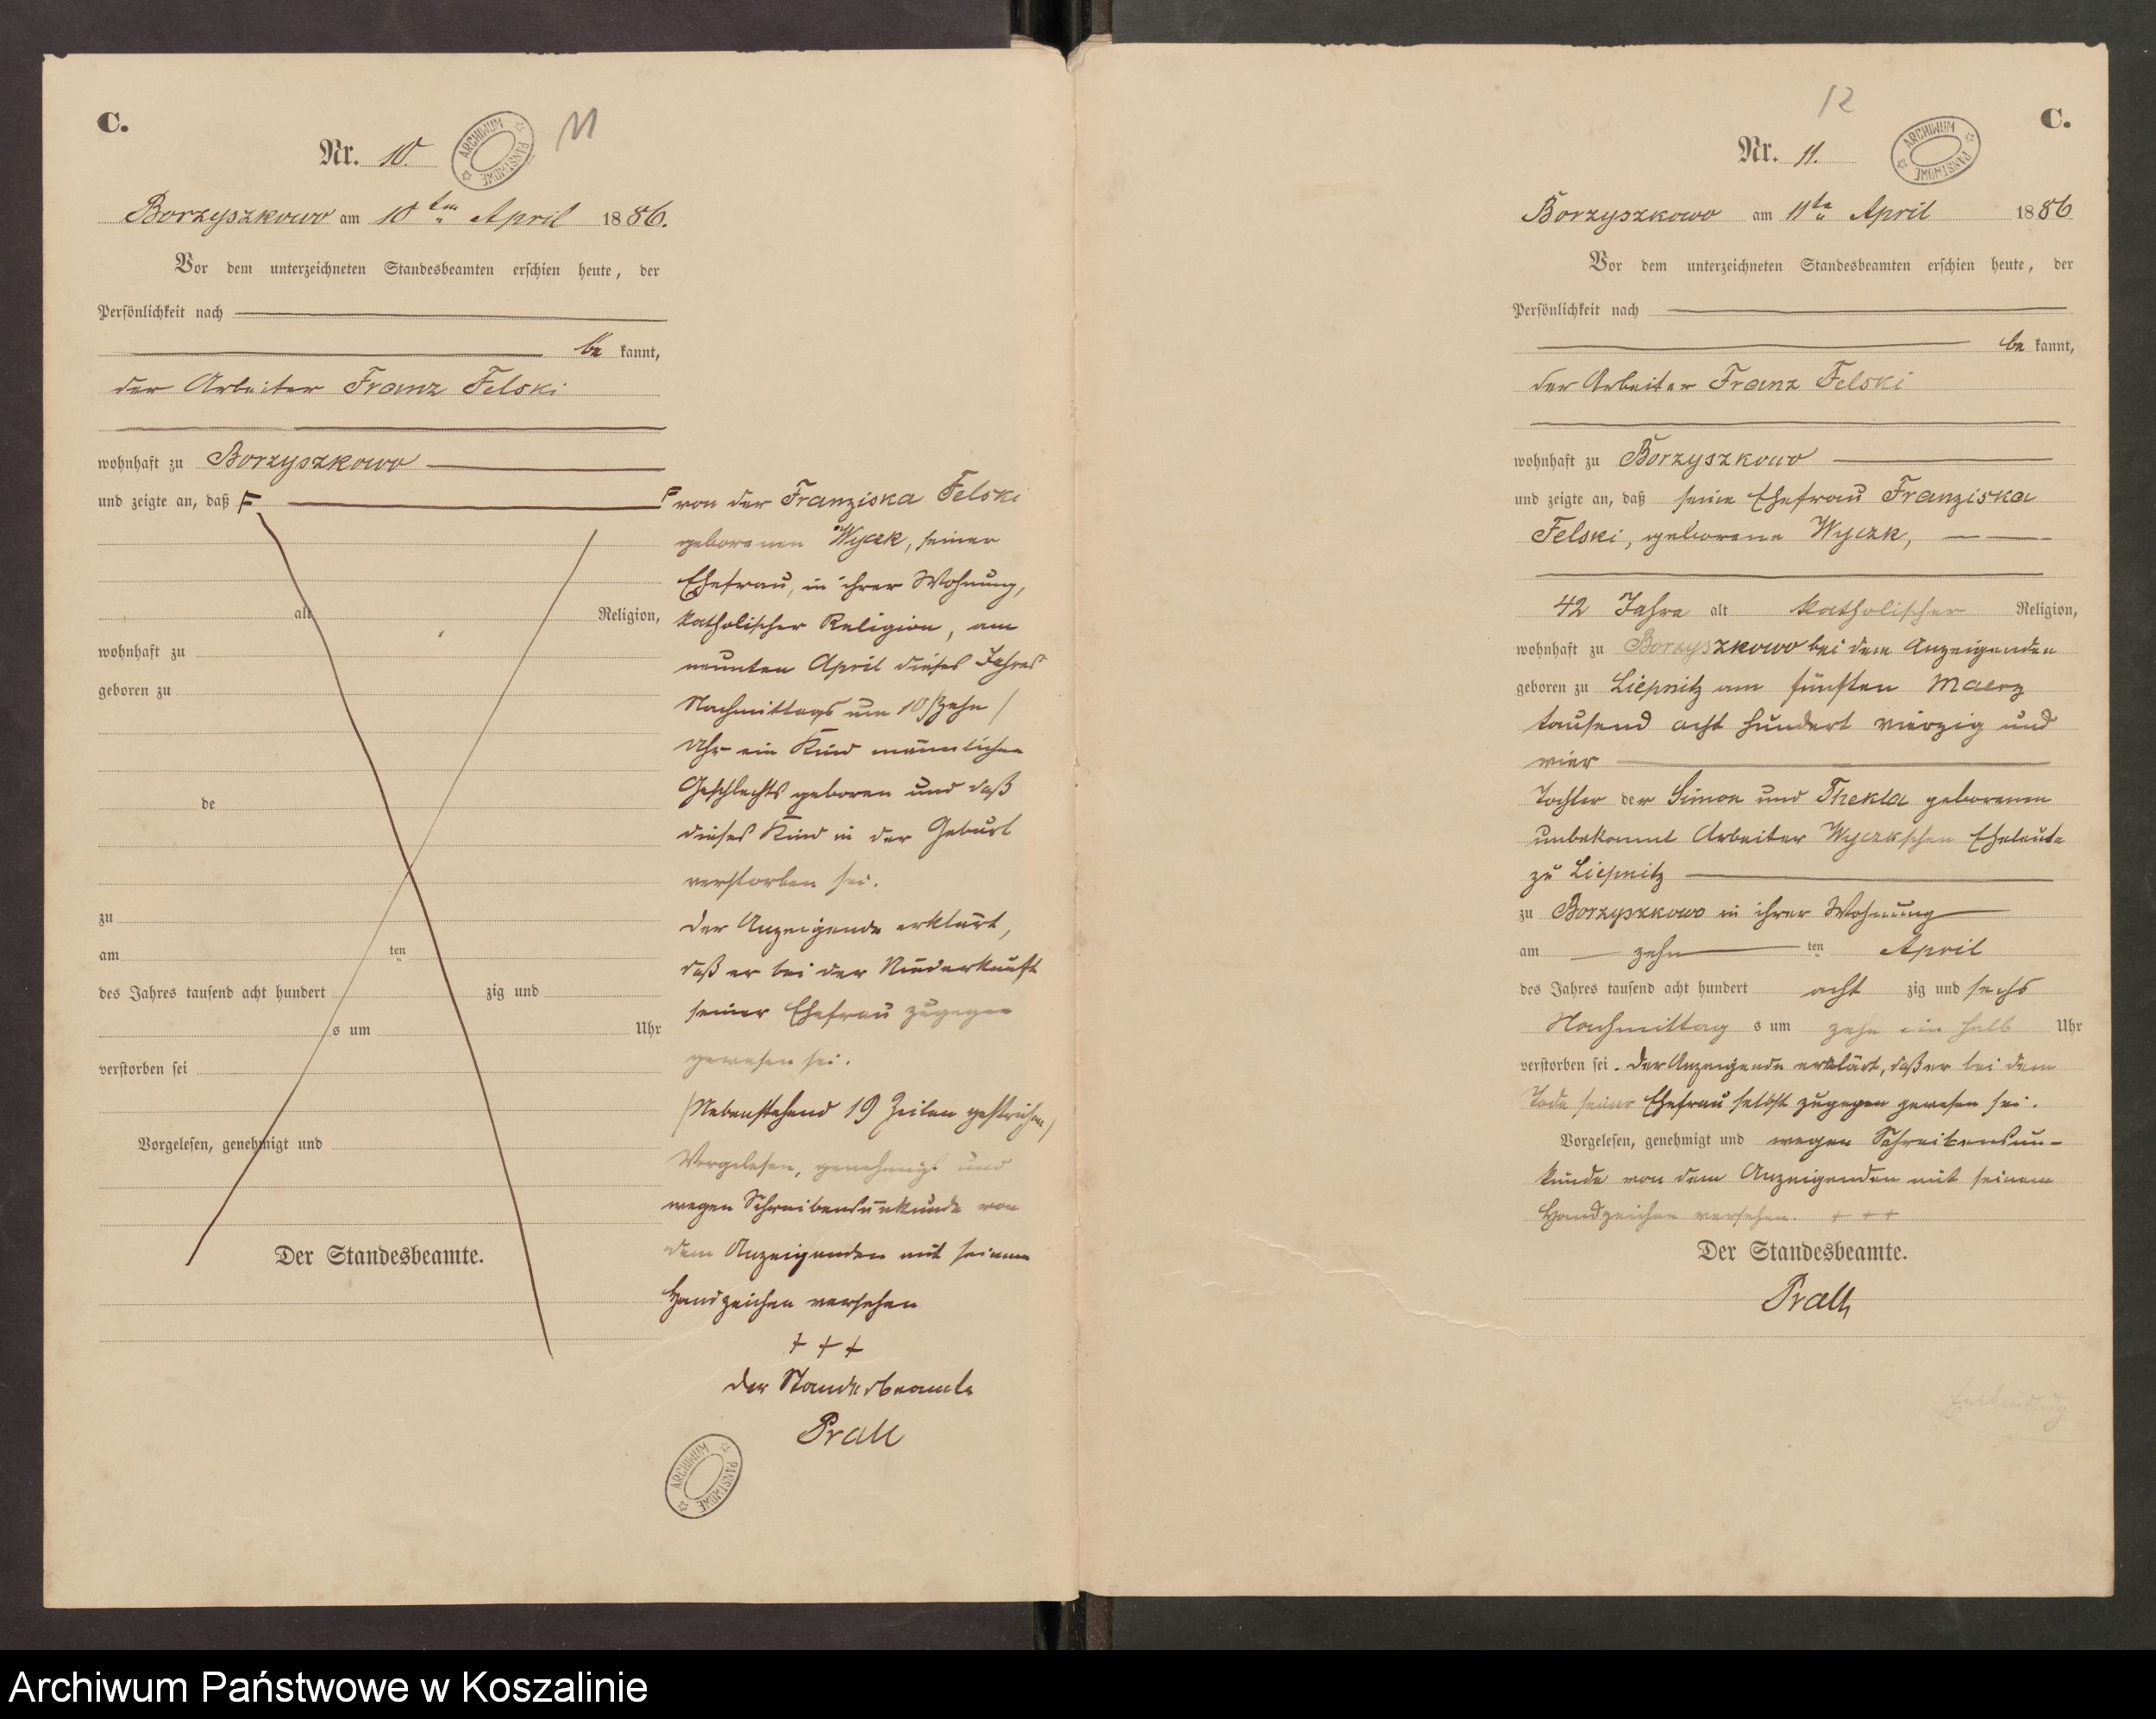 C.
Nr. 10.
ARCHIWUM PAŃSTWOWE
11
Borzyszkowo am 10ten April 1886.
Vor dem unterzeichneten Standesbeamten erschien heute, der
Persönlichkeit nach
be kannt,
der Arbeiter Franz Felski
wohnhaft zu Borzyszkowo
und zeigte an, daß F
alt Religion,
wohnhaft zu
geboren zu
de
zu
am ten
des Jahres tausend acht hundert zig und
s um Uhr
verstorben sei
Vorgelesen, genehmigt und
Der Standesbeamte.
F von der Franziska Felski
geborenen Wyczk, seiner
Ehefrau, in ihrer Wohnung,
katholischer Religion, am
neunten April dieses Jahres
Nachmittags um 10 /zehn/
Uhr ein Kind männlichen
Geschlechts geboren und daß
dieses Kind in der Geburt
verstorben sei.
Der Anzeigende erklärt,
daß er bei der Niederkunft
seiner Ehefrau zugegen
gewesen sei.
/Nebenstehend 19 Zeilen gestrichen/
Vorgelesen, genehmigt und
wegen Schreibensunkunde von
dem Anzeigenden mit seinem
Handzeichen versehen
+ + +
Der Standesbeamte
Prall
ARCHIWUM PAŃSTWOWE
12
C.
Nr. 11.
ARCHIWUM PAŃSTWOWE
Borzyszkowo am 11te April 1886
Vor dem unterzeichneten Standesbeamten erschien heute, der
Persönlichkeit nach
be kannt,
der Arbeiter Franz Felski
wohnhaft zu Borzyszkowo
und zeigte an, daß seine Ehefrau Franziska
Felski, geborene Wyczk,
42 Jahre alt katholischer Religion,
wohnhaft zu Borzyszkowo bei dem Anzeigenden
geboren zu Liepnitz am fünften Maerz
tausend acht hundert vierzig und
vier
Tochter der Simon und Thekla geborenen
unbekannt Arbeiter Wyczkschen Eheleute
zu Liepnitz
zu Borzyszkowo in ihrer Wohnung
am zehn ten April
des Jahres tausend acht hundert acht zig und sechs
Nachmittag s um zehn ein halb Uhr
verstorben sei. Der Anzeigende erklärt, daß er bei dem
Tode seiner Ehefrau selbst zugegen gewesen sei.
Vorgelesen, genehmigt und wegen Schreibensun-
kunde von dem Anzeigenden mit seinem
Handzeichen versehen. + + +
Der Standesbeamte.
Prall
Entbindung
Archiwum Państwowe w Koszalinie